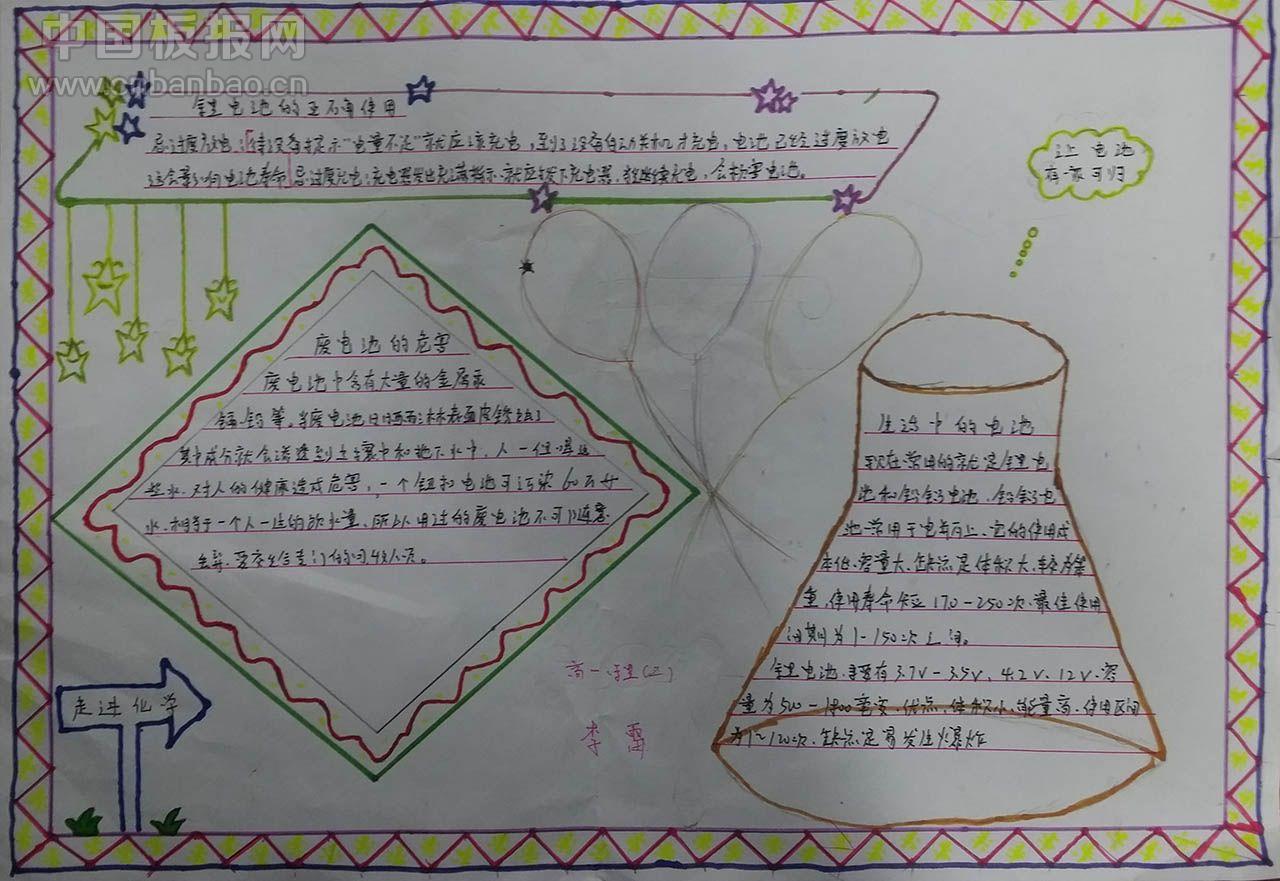 中国板报网
www.cnbanbao.cn
锂电池的正确使用
忌过度放电:待设备提示"电量不足"就应该充电,到了设备自动关机才充电,电池已经过度放电
这会影响电池寿命 忌过度充电:充电器发出充满指示,就应按下充电器,继续充电,会损害电池。
让电池
有家可归
废电池的危害
废电池中含有大量的金属汞
镉·铅等。当废电池日晒雨淋表面皮锈蚀了
其中成分就会渗透到土壤中和地下水中,人一但喝
些水,对人的健康造成危害,一个钮扣电池可污染60万升
水.相当于一个人一生的饮水量、所以用过的废电池不可以随意
丢弃,要交给专门的回收人员。
生活中的电池
现在常用的就是锂电
池和铅钙电池、铅钙电
池常用于电车上、它的使用成
本低、容量大、缺点是体积大、较为笨
重,使用寿命短170-250次.最佳使用
周期为1-150次之间。
锂电池.主要有3.7V-3.5V、4.2V.12V.容
量为500-1400毫安.优点、体积小、能量高.使用区间
为1~120次.缺点是易发生爆炸
走进化学
高一·锂(三)
李雷